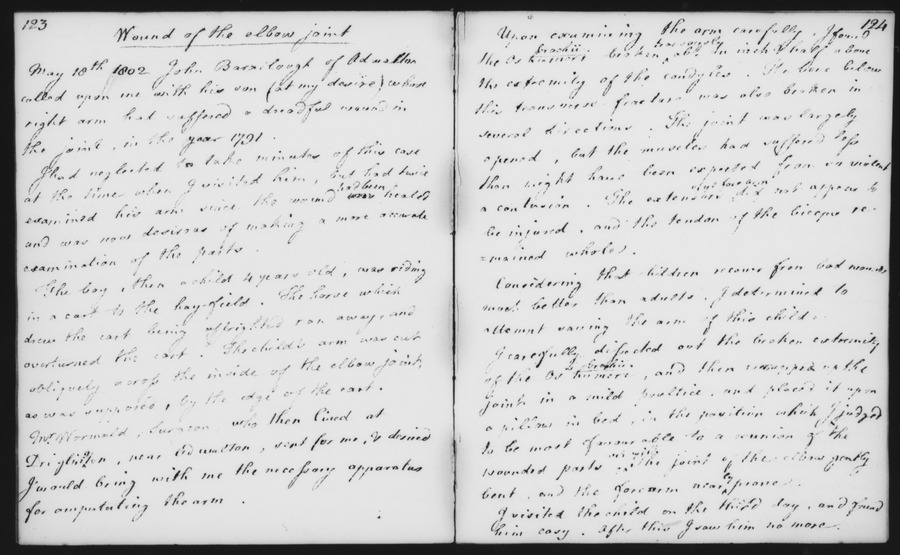 123
Wound of the elbow joint
May 18th 1802 John Barrilough of Adwalton
called upon me with his son (at my desire) whose
right arm had suffered a dreadful wound in
the joint, in the year 1791.
I had neglected to take minutes of this case
at the time when I visited him, but had twice
examined his arm since the wound had been was healed
and was now desirous of making a more accurate
examination of the parts.
The boy, then a child 4 years old, was riding
in a cart to the hay-field. The horse which
drew the cart being affrighted ran away, and
overturned the cart. The child's arm was cut
obliquely across the inside of the elbow joint,
as was supposed, by the edge of the cart.
Mr Wormald, Surgeon, who then lived at
Driglinton, near Adwalton, sent for me, & desired
I would bring with me the necessary apparatus
for amputating the arm.
124
Upon examining the arm carefully I found
the Os humeri brachii broken transversely an inch & half above
the extremity of the condyles. The bone below
this transverse fracture was also broken in
several directions. The joint was largely
opened, but the muscles had suffered less
than might have been expected from so violent
a contusion. The extensor did not appear to
be injured, and the tendon of the biceps re-
=mained whole.
Considering that children recover from bad wounds
much better than adults, I determined to
attempt saving the arm of this child.
I carefully dissected out the broken extremity
of the Os humeri brachii, and then wrapped up the
joint in a mild poultice, and placed it upon
a pillow in bed, in the position which I judged
to be most favourable to a reunion of the
wounded parts the joint of the elbow gently
bent, and the forearm nearly prone.
I visited the child on the third day, and found
him easy. After this I saw him no more.